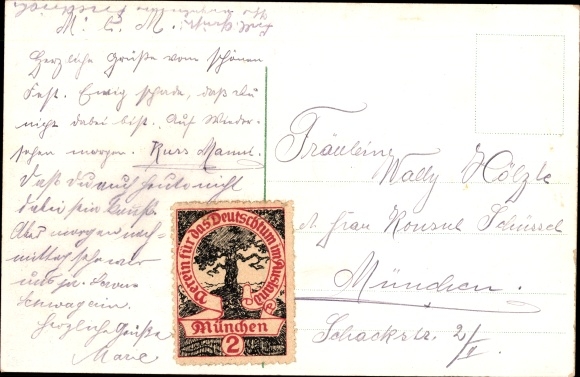 M. C. M.
Herzliche Grüße vom schönen
Fest. Ewig schade, daß Du
nicht dabei bist. Auf Wieder-
sehen morgen.
Daß Du auch heute nicht
dabei sein
morgen nach-
mittag sehen wir
uns ja.
Schwägerin
Herzliche Grüße
Marie
Verein für das Deutschtum im Ausland
München
2
Fräulein Wally Hölzle
Frau Konsul Schüssel
München.
Schackstr. 2/II